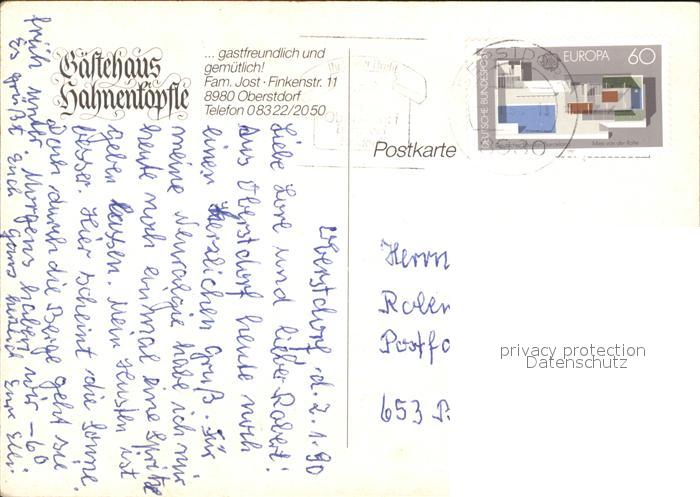 Gästehaus
Hahnenköpfle
... gastfreundlich und
gemütlich!
Fam. Jost · Finkenstr. 11
8980 Oberstdorf
Telefon 0 83 22/20 50
Postkarte
DEUTSCHE BUNDESPOST
EUROPA 60
Mies van der Rohe
Oberstdorf, d. 2.1.90
Liebe Lore und lieber Robert!
Aus Oberstdorf heute noch
einen herzlichen Gruß. Für
meine Neuralgie habe ich mir
heute noch einmal eine Spritze
geben lassen. Mein Husten ist
besser. Hier scheint die Sonne.
Doch durch die Berge geht sie
früh unter. Morgens haben wir -6°
Es grüßt Euch ganz herzlich Eure Elli.
Herrn
Rober
Postfa
653
privacy protection
Datenschutz